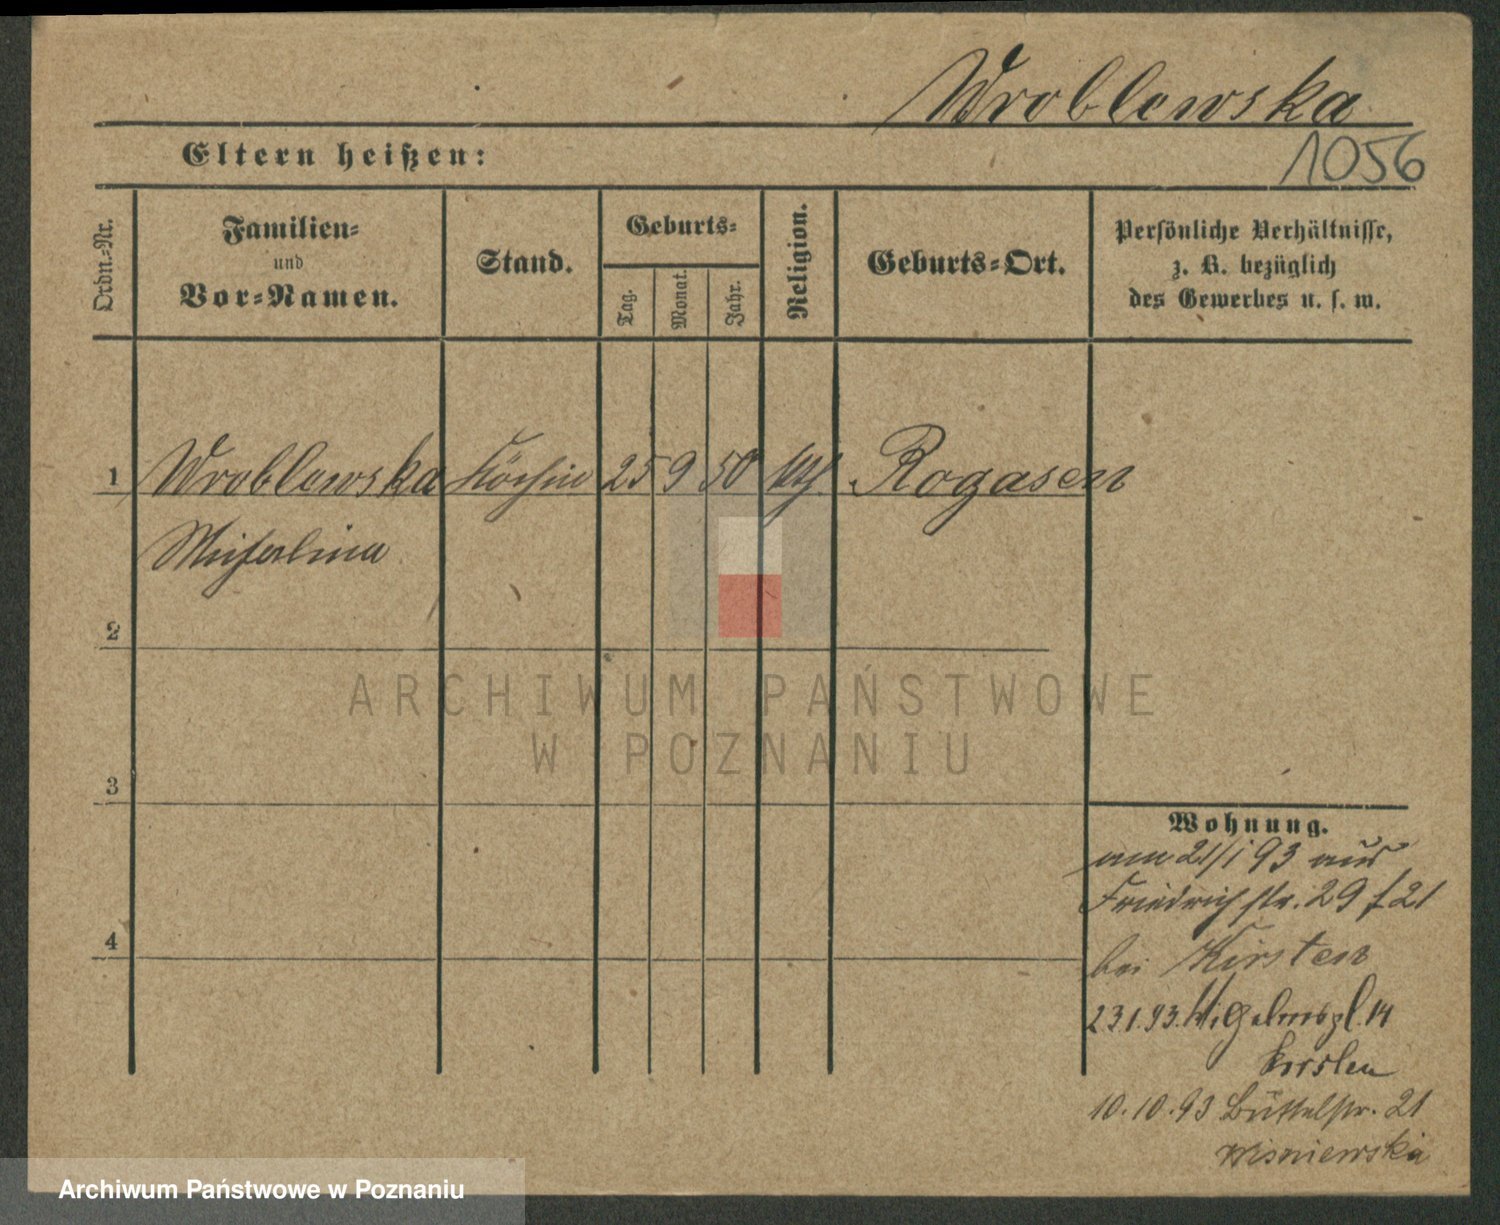 Wroblewska
1056
Eltern heißen:
Ordn.-Nr.
Familien-
und
Vor-Namen.
Stand.
Geburts-
Tag.
Monat.
Jahr.
Religion.
Geburts-Ort.
Persönliche Verhältnisse,
z. B. bezüglich
des Gewerbes u. s. w.
1 Wroblewska Köchin 25 9 50 kth. Rogasen
2
ARCHIWUM PAŃSTWOWE
W POZNANIU
3
Wohnung.
am 21/1 93 aus
Friedrichstr. 29 f 21
4
bei Kirsten
23.1.93. Wilhelmspl. 14
Kirsten
10.10.93 Büttelstr. 21
Wisniewska
Archiwum Państwowe w Poznaniu